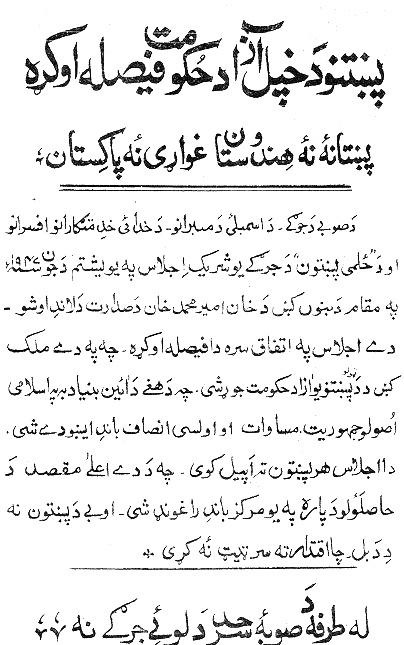 پښتنو د خپل آزاد حکومت فیصله اوکړه
پښتانهٔ نهٔ هندوستان غواړی نهٔ پاکستان
د صوبے د جرګے۔ د اسمبلئ د ممبرانو۔ د خدائی خدمتګارانو افسرانو
او د "حٔلمی پښتون" د جرګے یو شریک اجلاس په یویشتم د جون
په مقام د بنوں کښ د خان امیر محمد خان د صدارت د لاندِ اوشو۔
دے اجلاس په اتفاق سره دا فیصله اوکړه۔ چه په دے ملک
کښ د د پښتنو یو آزاد حکومت جوړ شی۔ چه د هغے د آئین بنیاد په اسلامی
اُصولو جمهوریت، مساوات او اولسی انصاف باندِ ایښودے شی۔
دا اجلاس هر پښتون ته اَپیل کوی۔ چه د دے اعلیٰ مقصد د
حاصلولو د پاره په یو مرکز باندِ راغونډ شی۔ او بے د پښتون نه
د بل چا اقتدار ته سر ټیټ نهٔ کړی
له طرفه د صوبهٔ سرحد د لوئے جرګے نه